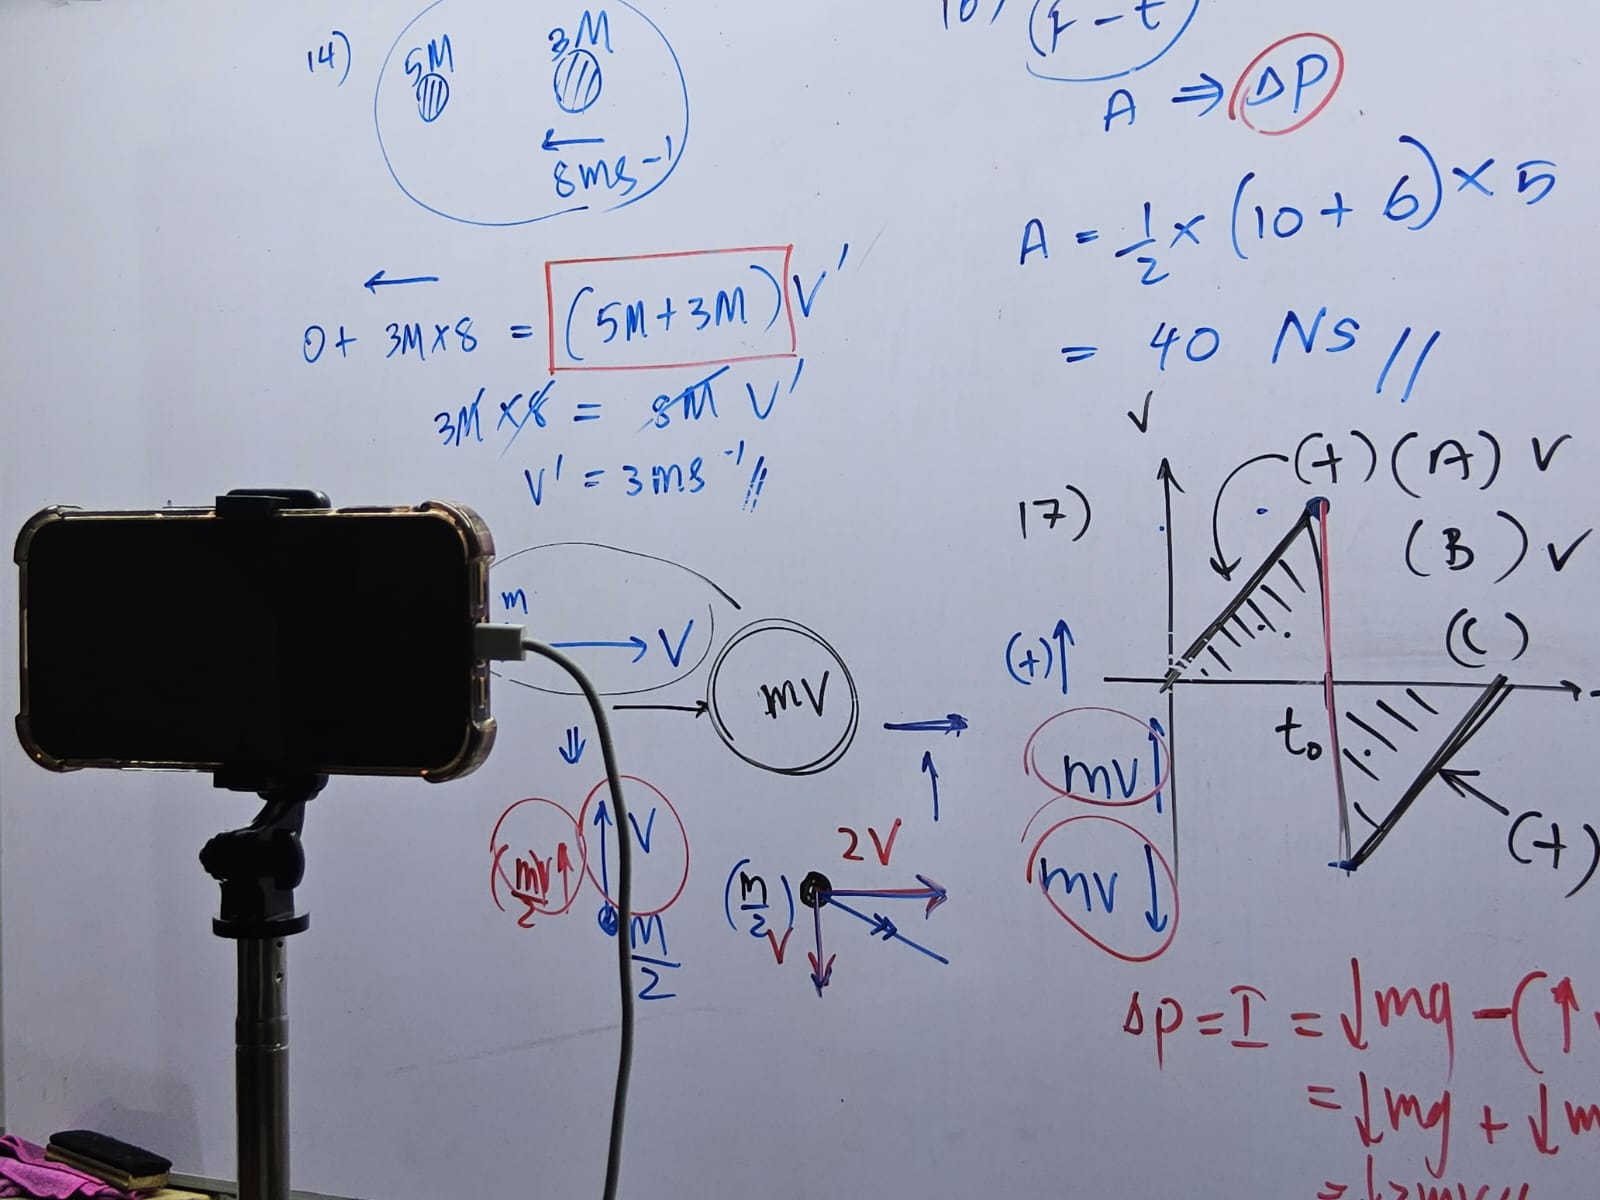 14)
5M
3M
8ms⁻¹
0 + 3M×8 = (5M+3M)V'
3M×8 = 8M V'
V' = 3ms⁻¹//
m
V
mV
(mV↑
2
V
m
2
(m
2)
2V
V
(F-t)
A ⇒ ΔP
A = 1/2 × (10 + 6) × 5
= 40 NS //
V
17)
(+) (A) V
(B) V
(C)
(+)↑
t₀
mV↑
mV↓
(+)
ΔP = I = ↓mg - (↑
= ↓mg + ↓m